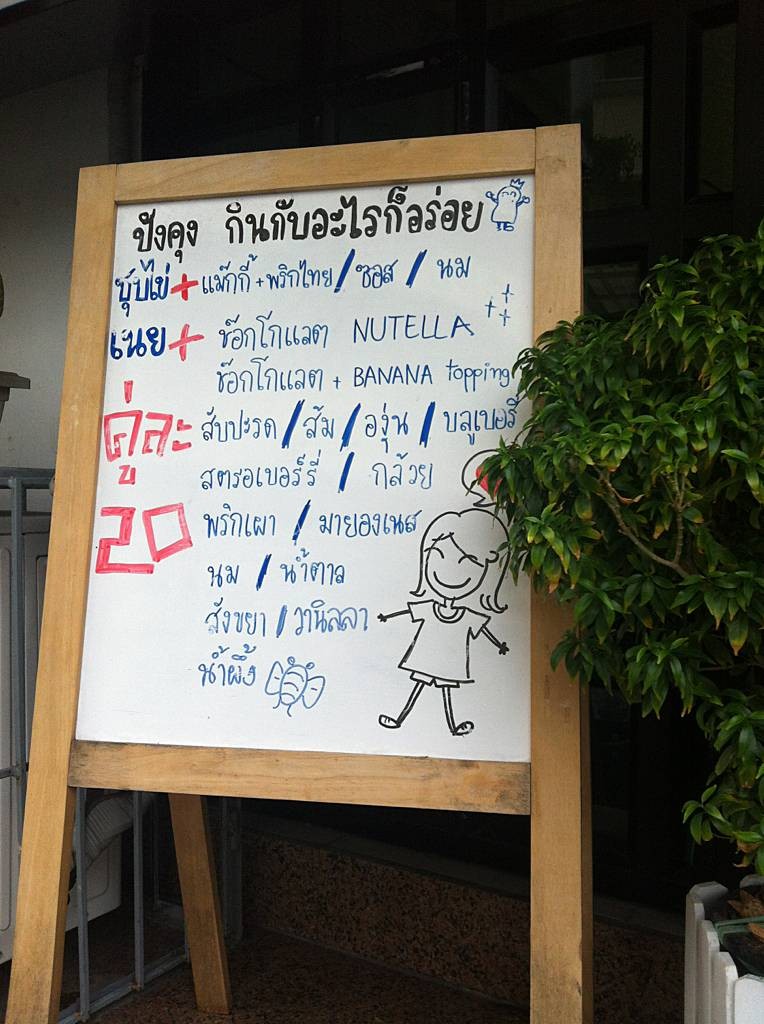 ปังคุง กินกับอะไรก็อร่อย
ชุบไข่ + แม๊กกี้ + พริกไทย / ซอส / นม
เนย + ช๊อกโกแลต NUTELLA
ช๊อกโกแลต + BANANA topping
คู่ละ สับปะรด / ส้ม / องุ่น / บลูเบอรี่
สตรอเบอร์รี่ / กล้วย
20 พริกเผา / มายองเนส
นม / น้ำตาล
สังขยา / วานิลลา
น้ำผึ้ง